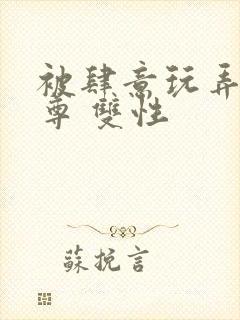 被肆意玩弄
尊 雙性
蘇挽言